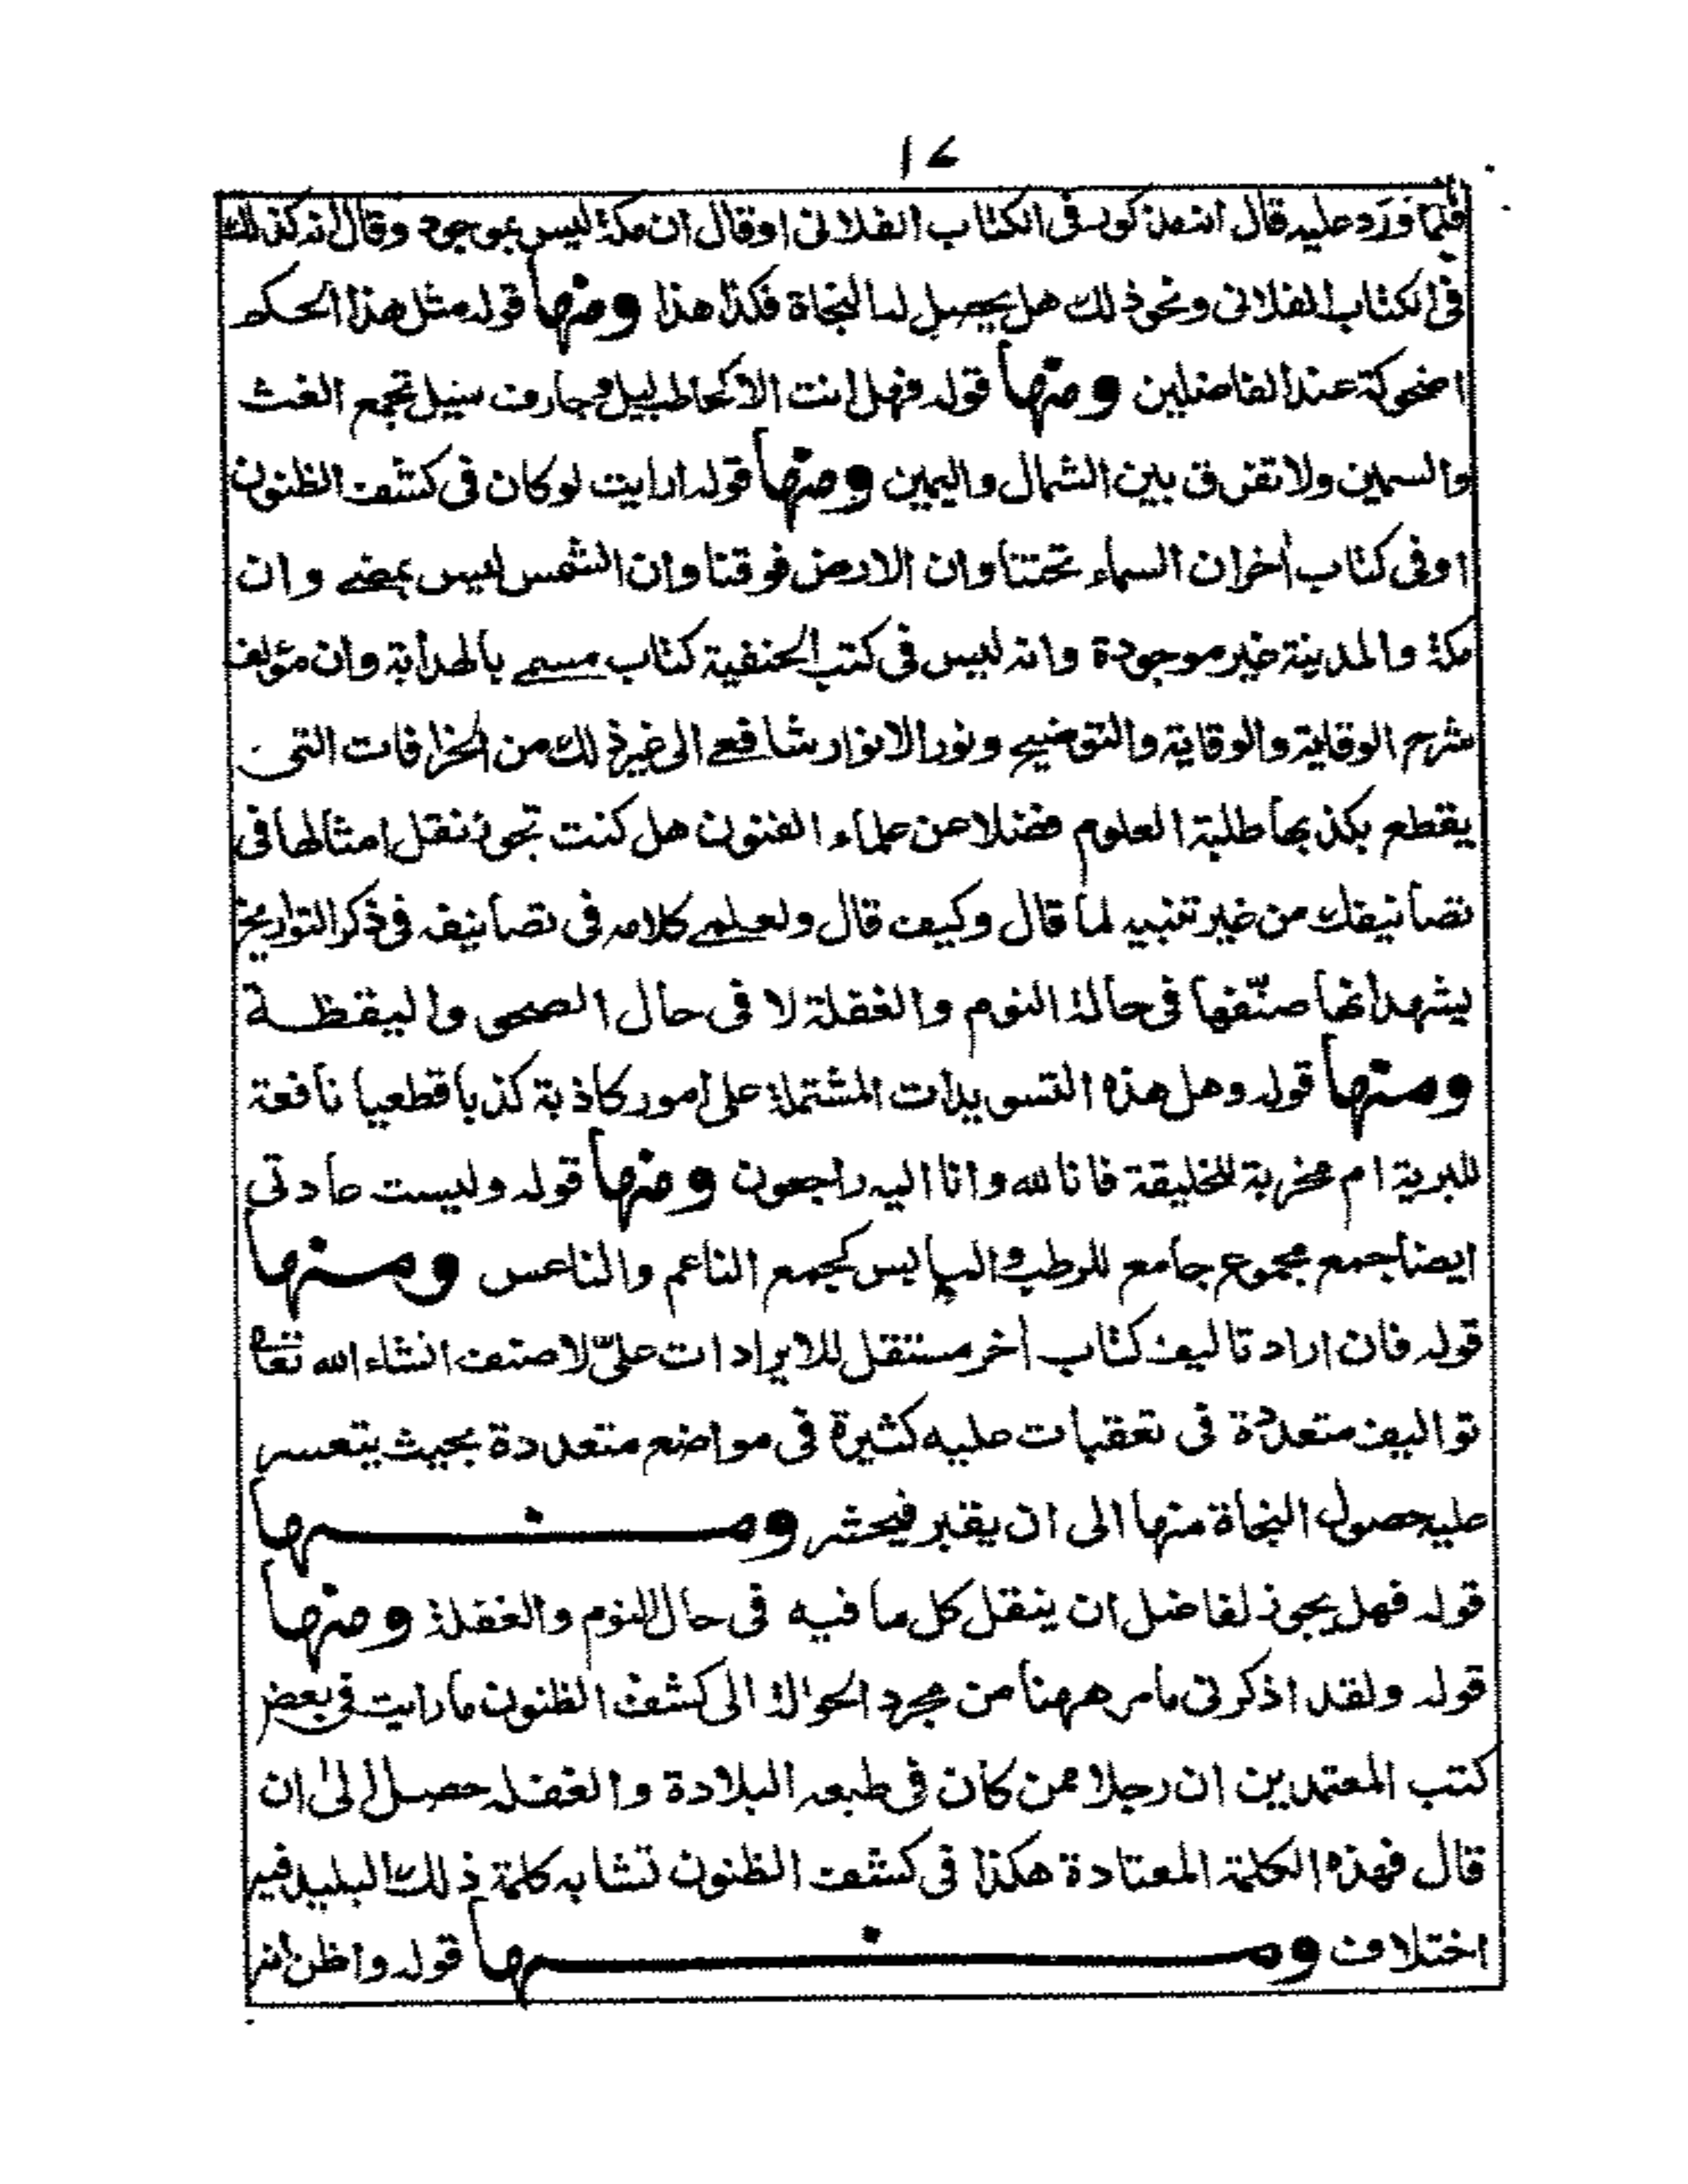 ١٤
فلما ورد عليه قال انه مذكور فى الكتاب الفلانى او قال ان مكة ليس بموجود وقال انه كذلك
فى الكتاب الفلانى ونحو ذلك هل يحصل له النجاة فكذا هذا ومنها قوله مثل هذا الحكم
اضحوكة عند الفاضلين ومنها قوله فهل انت الا كحاطب ليل وجارف سيل تجمع الغث
والسمين ولا تفرق بين الشمال واليمين ومنها قوله ارايت لو كان فى كشف الظنون
او فى كتاب أخر ان السماء تحتنا وان الارض فوقنا وان الشمس ليس بمضے وان
مكة والمدينة غير موجودة وانه ليس فى كتب الحنفية كتاب مسمے بالهداية وان مؤلف
شرح الوقاية والوقاية والتوضيح ونور الانوار شافعے الى غير ذلك من الخرافات التى
يقطع بكذبها طلبة العلوم فضلا عن علماء الفنون هل كنت تجوز نقل امثالها فى
تصانيفك من غير تنبيه لما قال وكيف قال ولعلمے كلامه فى تصانيفه فى ذكر التواريخ
يشهد انها صنّفها فى حالة النوم والغفلة لا فى حال الصحى واليقظة
ومنها قوله وهل هذه التسويدات المشتملة على امور كاذبة كذبا قطعيا نافعة
للبرية ام مخربة للخليقة فانا لله وانا اليه راجعون ومنها قوله وليست عادتى
ايضا جمع مجموع جامع للرطب واليابس كجمع الناعم والناعس ومنها
قوله فان اراد تاليف كتاب أخر مستقل للايرادات علىّ لاصنف انشاء الله تعا
تواليف متعددة فى تعقبات عليه كثيرة فى مواضع متعددة بحيث يتعسر
عليه حصول النجاة منها الى ان يقبر فيحشر ومنها
قوله فهل يجوز لفاضل ان ينقل كل ما فيه فى حال النوم والغفلة ومنها
قوله ولقد اذكرنى مامر ههنا من مجرد الحوالة الى كشف الظنون ما رايت فى بعض
كتب المعتمدين ان رجلا ممن كان فى طبعه البلادة والغفله حصل الى ان
قال فهذه الكلمة المعتادة هكذا فى كشف الظنون تشابه كلمة ذلك البليد فيه
اختلاف ومنها قوله واظن انه